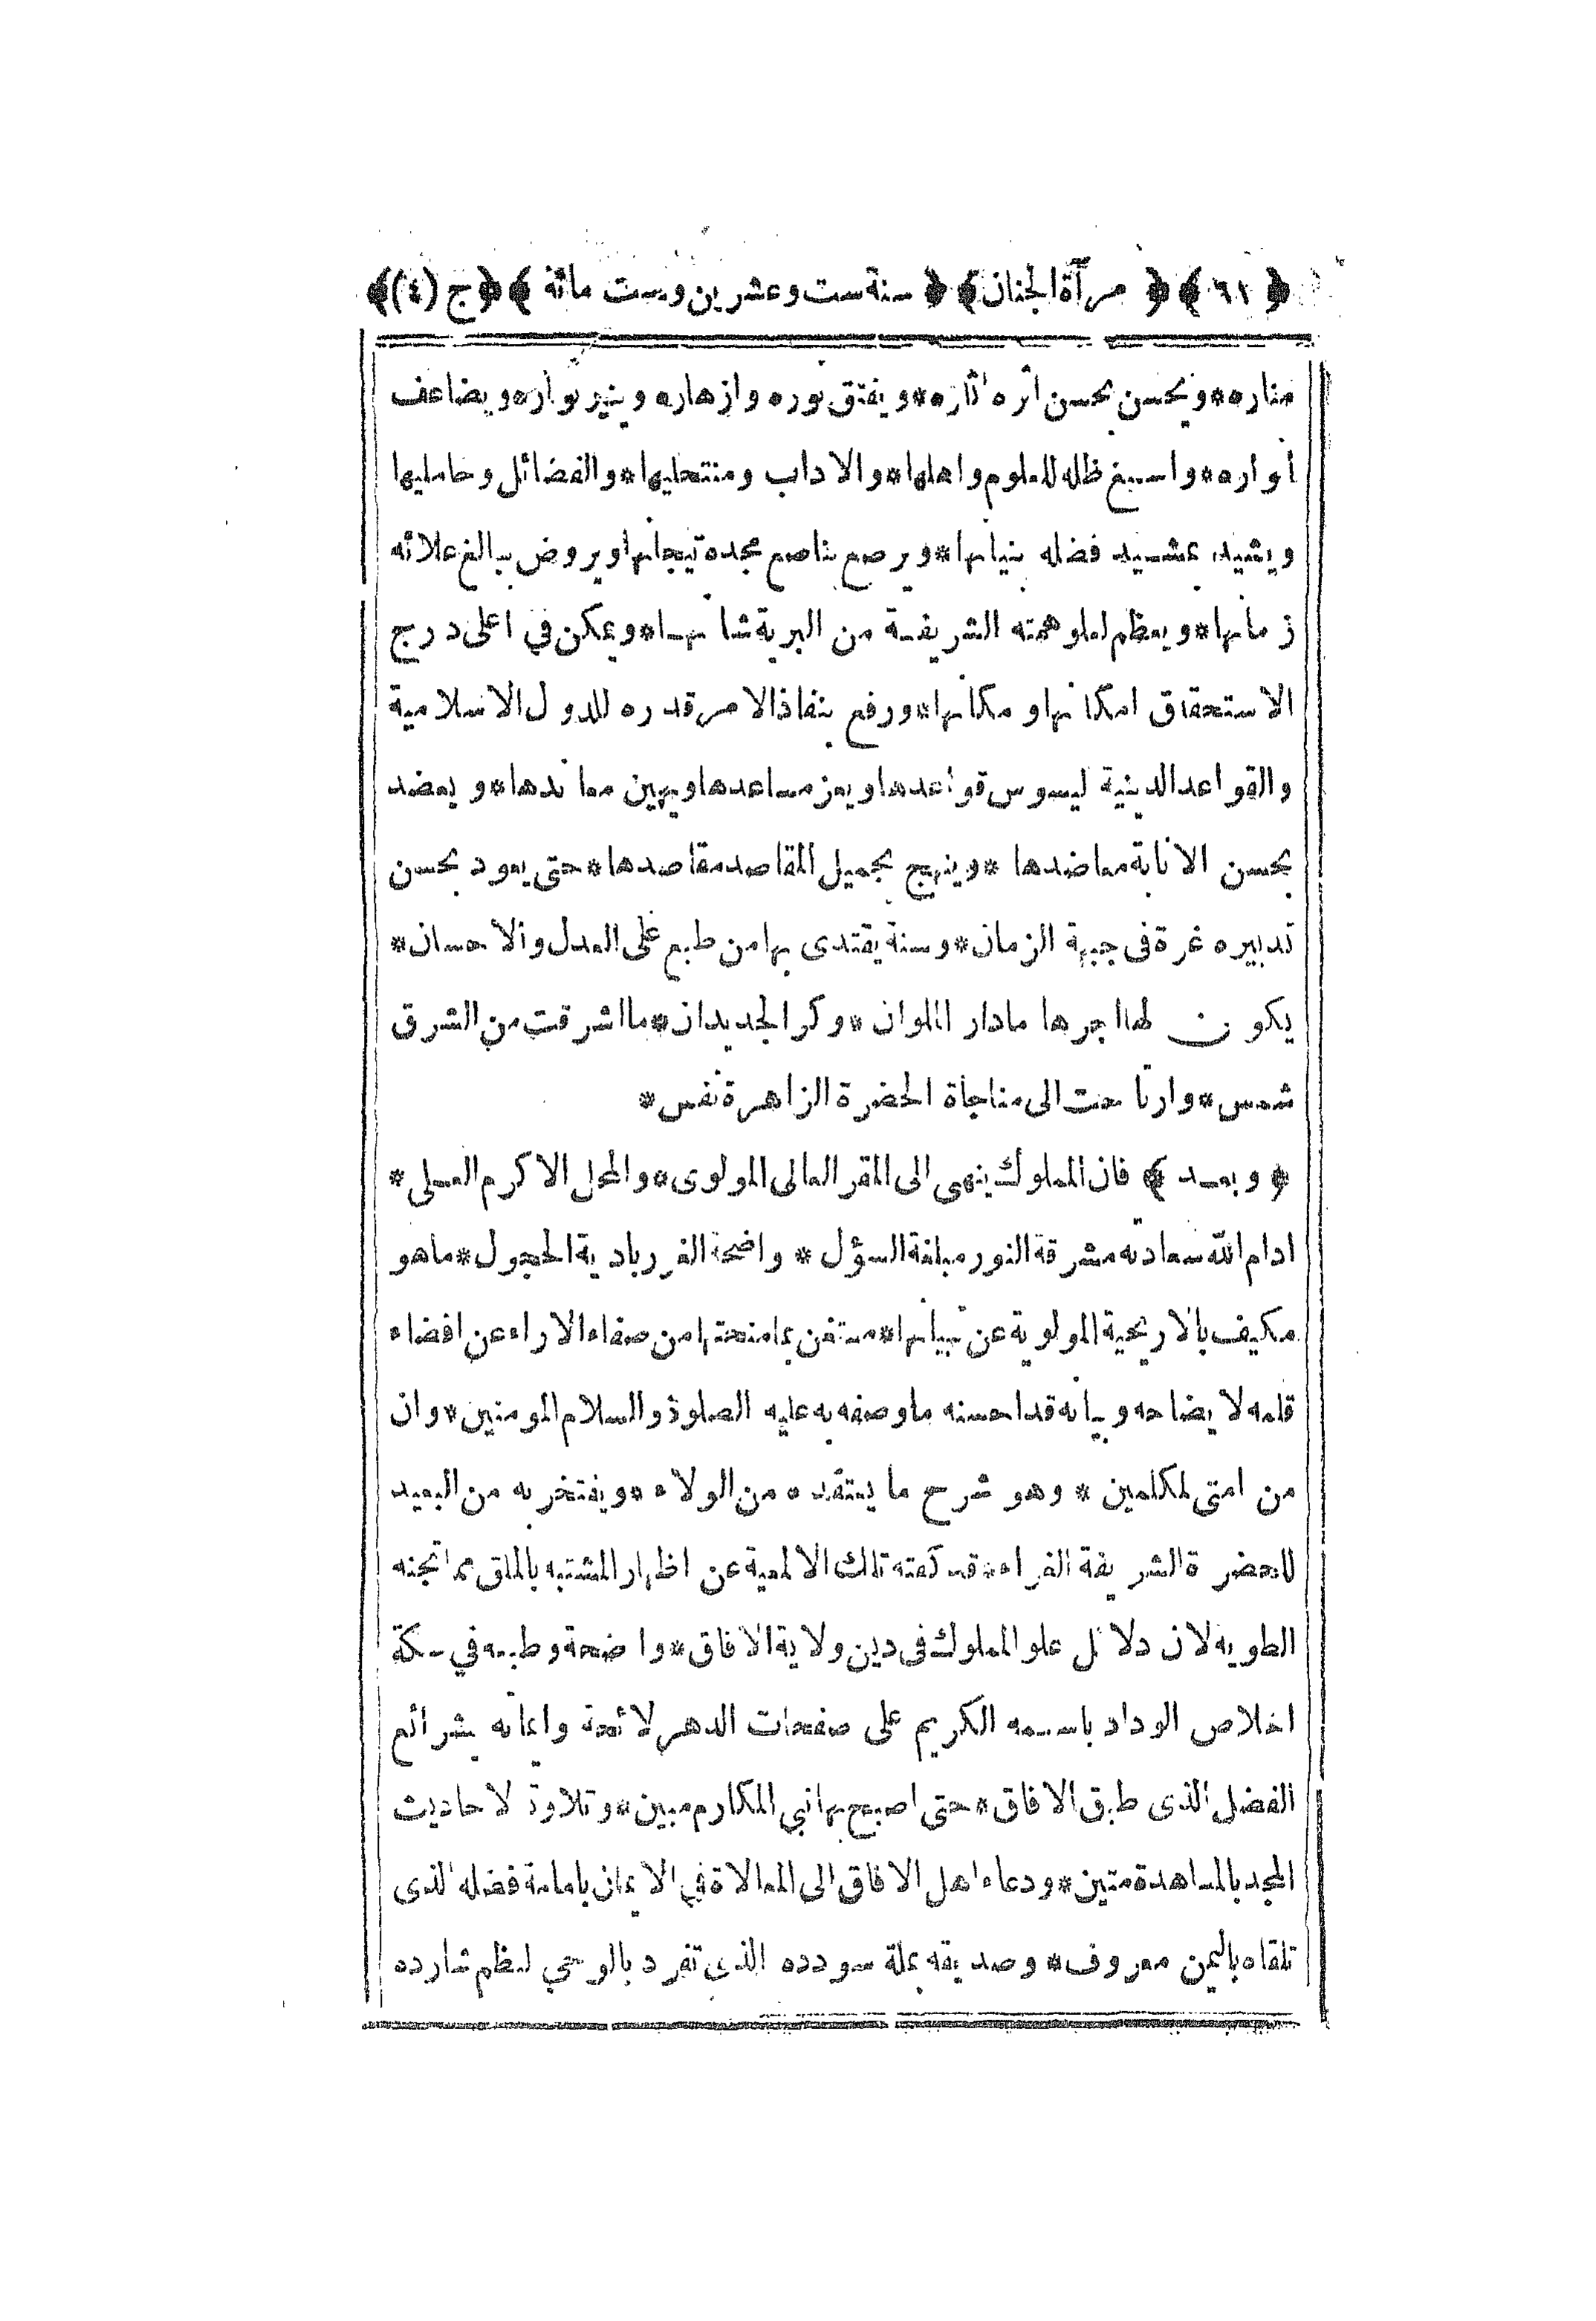 ﴿ ٦١ ﴾ ﴿ مرآة الجنان ﴾ ﴿ سنة ست وعشرين وست مائة ﴾ ﴿ ج (٤) ﴾
مناره * ويحسن بحسن اثره اثاره * ويفتق نوره وازهاره وينير نواره ويضاعف
أنواره * واسبغ ظله للعلوم واهلها * والاداب ومنتحليها * والفضائل وحامليها
ويشيد بمشيد فضله بنيانها * ويرصع بناصع مجده تيجانها ويروض ببالغ علائه
زمانها * ويعظم لعلو همته الشريفة من البرية شانها * ويمكن في اعلى درج
الاستحقاق امكانها ومكانها * ورفع بنفاذ الامر قدره للدول الاسلامية
والقواعد الدينية ليسوس قواعدها ويعز مساعدها ويهين معاندها * ويعضد
بحسن الانابة معاضدها * وينهج بجميل المقاصد مقاصدها * حتى يعود بحسن
تدبيره غرة فى جبهة الزمان * وسنة يقتدى بها من طبع على العدل والاحسان *
يكون لها اجرها مادار الملوان * وكر الجديدان * ما اشرقت من الشرق
شمس * وارتاحت الى مناجاة الحضرة الزاهرة نفس *
﴿ وبعد ﴾ فان المملوك ينهى الى المقر العالى المولوى * والمحل الاكرم العلى *
ادام الله سعادته مشرقة النور مبلغة السؤل * واضحة الغرر بادية الحجول * ماهو
مكيف بالاريحية المولوية عن تبيانها * مستغن بما منحتها من صفاء الاراء عن افضاء
قلمه لايضاحه وبيانه قد احسنه ما وصفه به عليه الصلوة والسلام المومنين * وان
من امتى لمكلمين * وهو شرح ما يعتقده من الولاء * ويفتخر به من البعيد
للحضرة الشريفة الغراء * قد كفته تلك الالمعية عن اظهار المشتبه بالملق مما تجنه
الطويه لان دلائل علو المملوك فى دين ولاية الافاق * واضحة وطبعه في سكة
اخلاص الوداد باسمه الكريم على صفحات الدهر لائحة وايمانه بشرائع
الفضل الذى طبق الافاق * حتى اصبح بها نبي المكارم مبين * وتلاوة لاحاديث
المجد بالمساهدة متين * ودعاء اهل الافاق الى المعالاة في الايمان بامامة فضله الذى
تلقاه باليمن معروف * وصديقه بملة سودده الذى تفرد بالوحي لنظم شارده